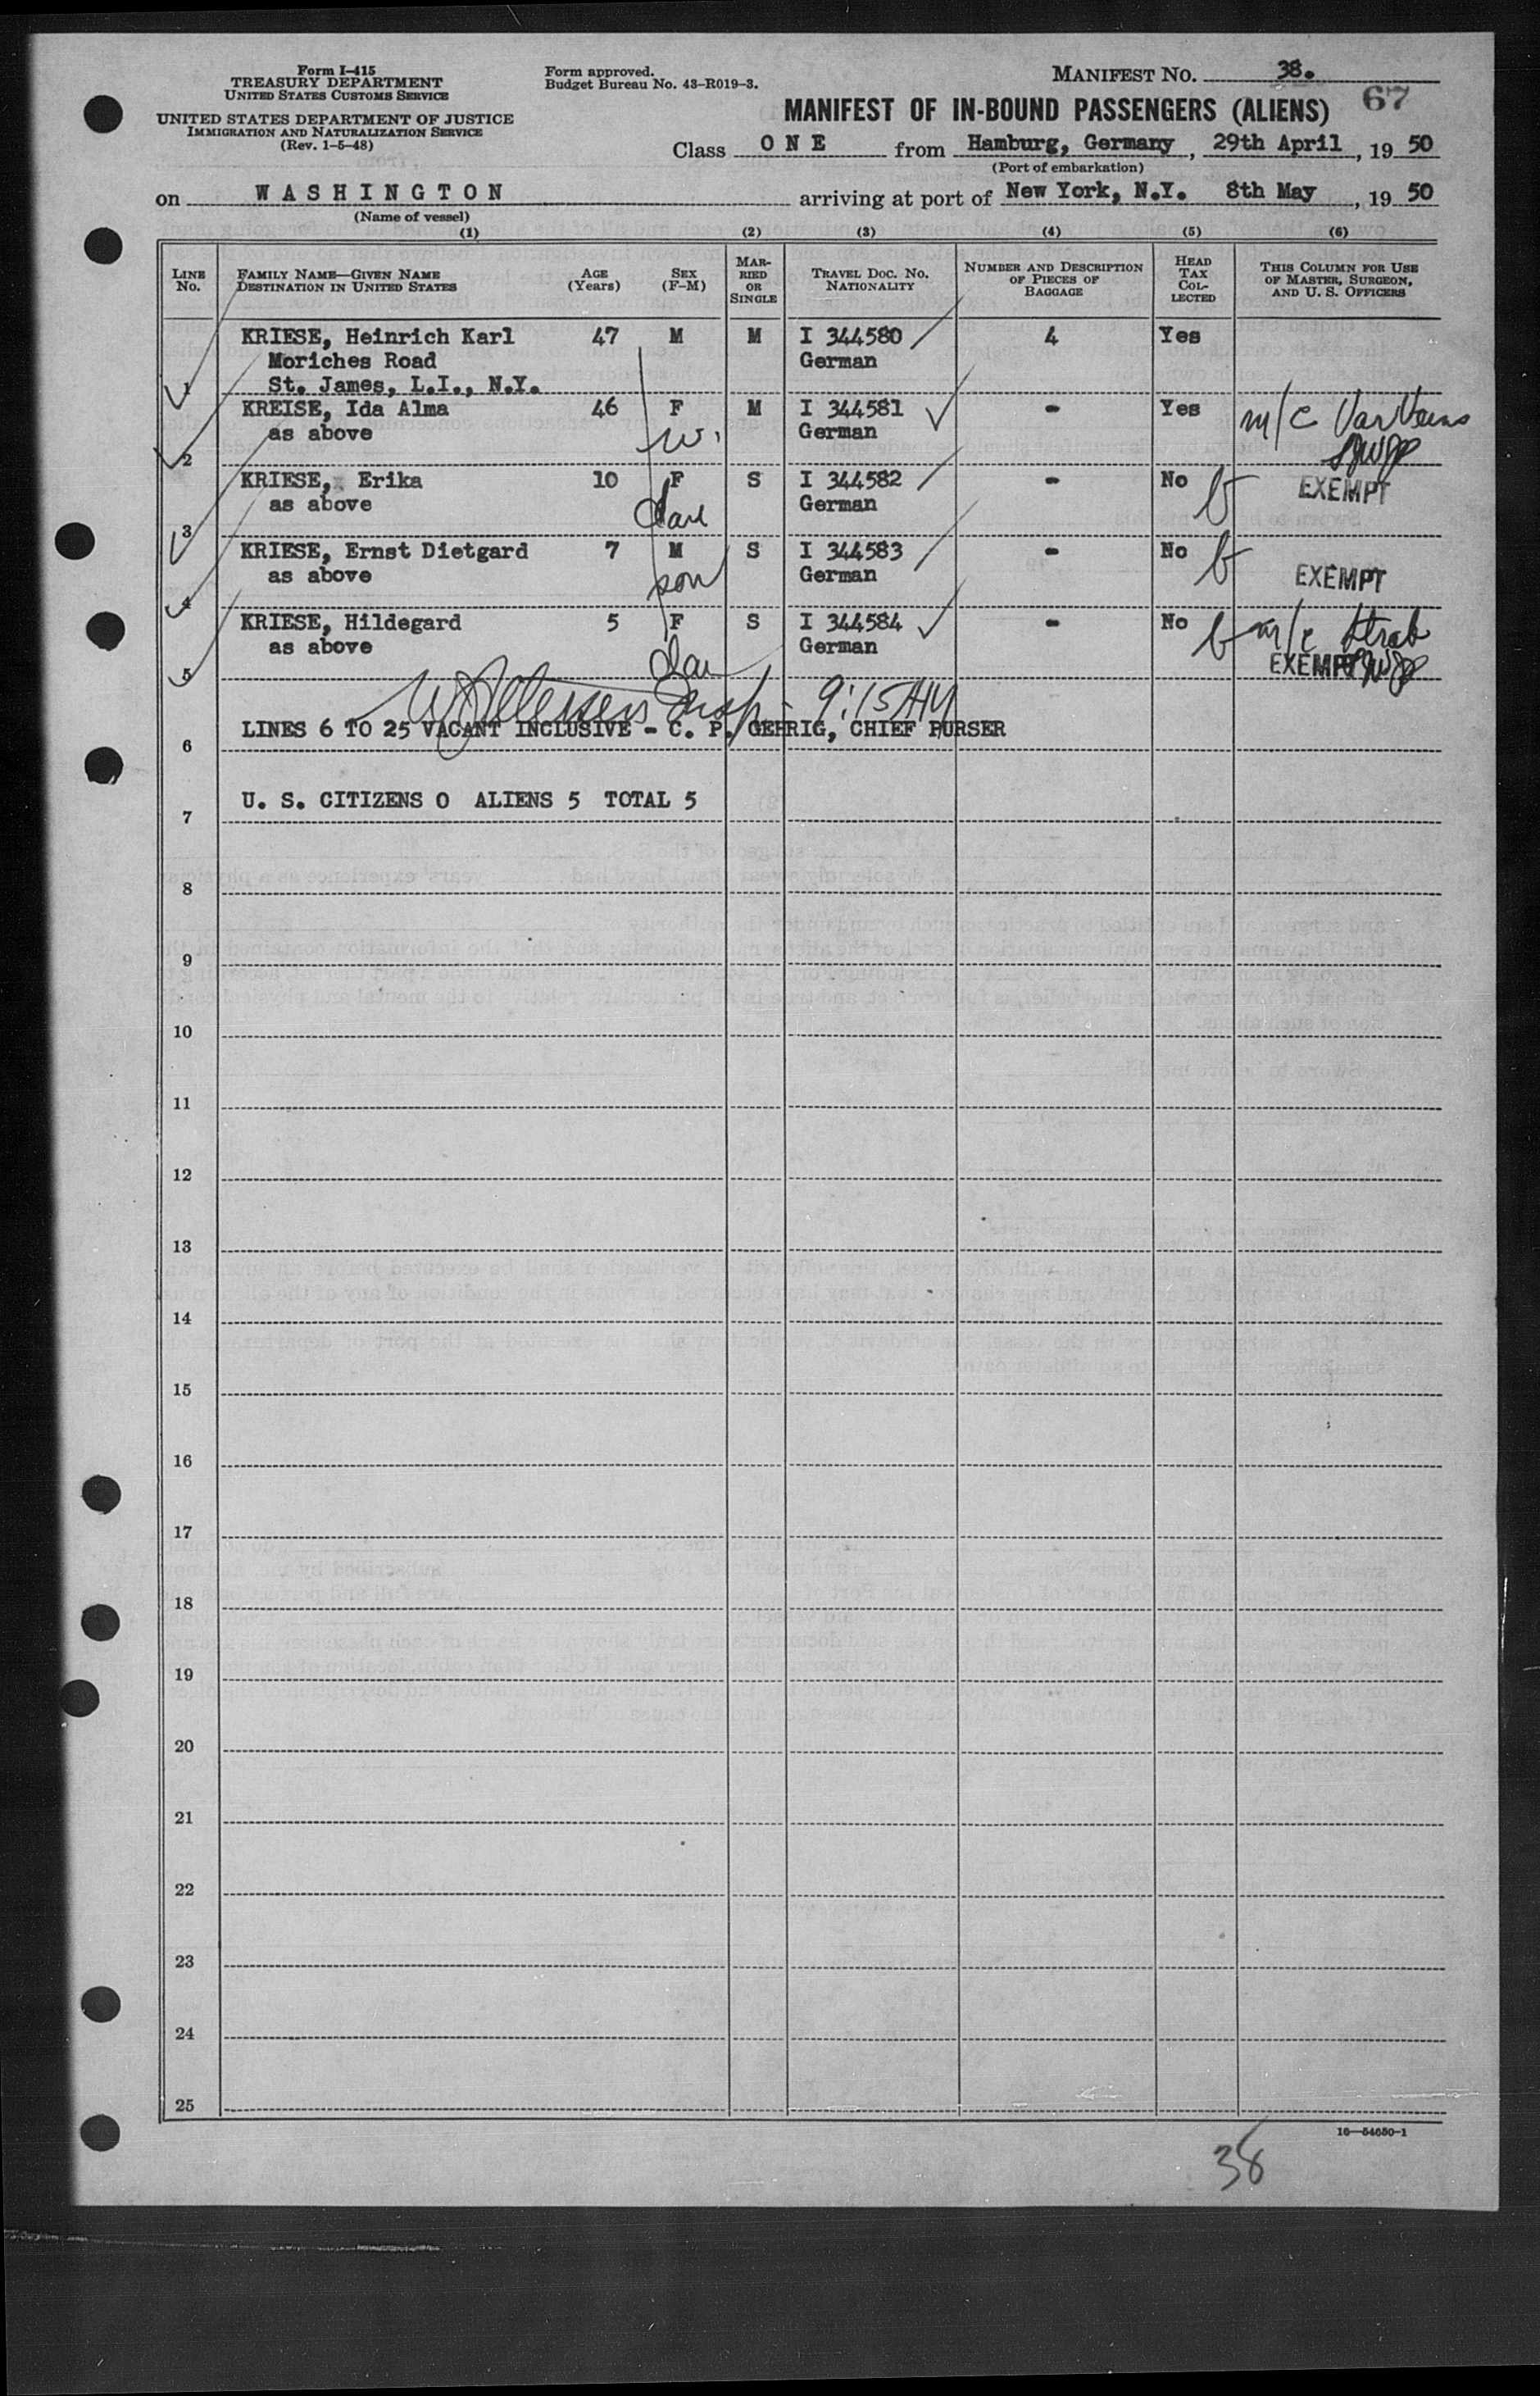 Form I-415
TREASURY DEPARTMENT
UNITED STATES CUSTOMS SERVICE
UNITED STATES DEPARTMENT OF JUSTICE
IMMIGRATION AND NATURALIZATION SERVICE
(Rev. 1-5-48)
Form approved.
Budget Bureau No. 43-R019-3.
MANIFEST NO. 38.
67
MANIFEST OF IN-BOUND PASSENGERS (ALIENS)
Class O N E from Hamburg, Germany, 29th April, 19 50
(Port of embarkation)
on W A S H I N G T O N arriving at port of New York, N.Y. 8th May, 19 50
(Name of vessel)
(1) (2) (3) (4) (5) (6)
LINE NO. FAMILY NAME—GIVEN NAME DESTINATION IN UNITED STATES AGE (YEARS) SEX (F-M) MARRIED OR SINGLE TRAVEL DOC. NO. NATIONALITY NUMBER AND DESCRIPTION OF PIECES OF BAGGAGE HEAD TAX COLLECTED THIS COLUMN FOR USE OF MASTER, SURGEON, AND U. S. OFFICERS
KRIESE, Heinrich Karl 47 M M I 344580 4 Yes
Moriches Road German
1 St. James, L.I., N.Y.
KREISE, Ida Alma 46 F M I 344581 - Yes m/c
as above w. German
2
KRIESE, Erika 10 F S I 344582 - No EXEMPT
as above dau German
3
KRIESE, Ernst Dietgard 7 M S I 344583 - No EXEMPT
as above son German
4
KRIESE, Hildegard 5 F S I 344584 - No m/c
as above dau German EXEMPT
5
Insp 9:15 AM
6 LINES 6 TO 25 VACANT INCLUSIVE - C. P. GEHRIG, CHIEF PURSER
7 U. S. CITIZENS 0 ALIENS 5 TOTAL 5
8
9
10
11
12
13
14
15
16
17
18
19
20
21
22
23
24
25
16—54650-1
38